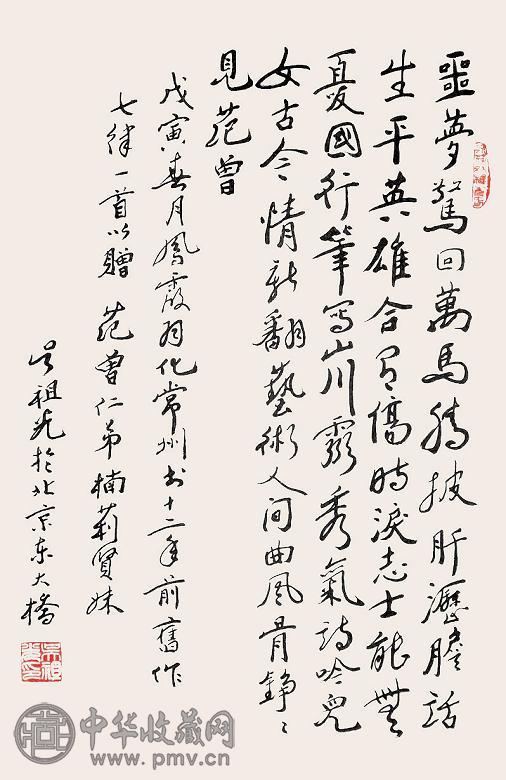 噩夢驚回萬馬騰披肝瀝膽話
生平英雄合有傷時淚志士能無
憂國行筆寫山川靈秀氣詩吟兒
女古今情新翻藝術人間曲風骨錚〻
見范曾
戊寅春月鳳霞羽化常州书十二年前舊作
七律一首以贈 范曾仁弟楠莉賢妹
吴祖光於北京东大橋
中华收藏网
www.pmv.cn